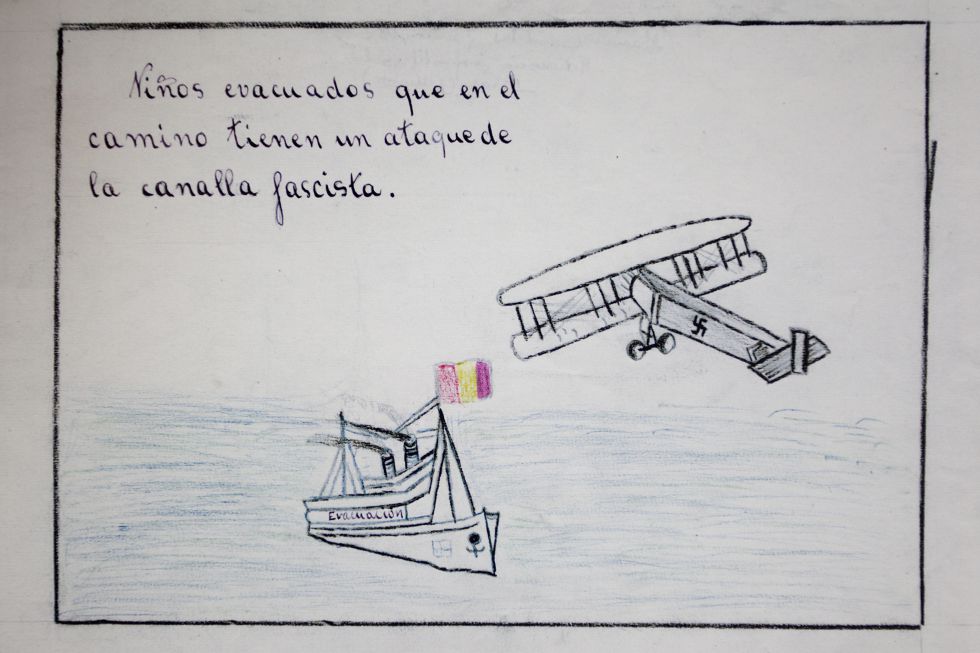 Niños evacuados que en el
camino tienen un ataque de
la canalla fascista.
Evacuación